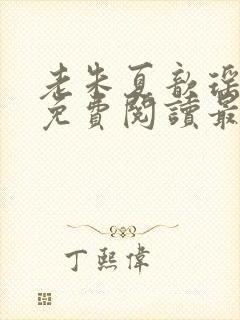 老朱夏歆瑶
免費閱讀最
丁熙偉